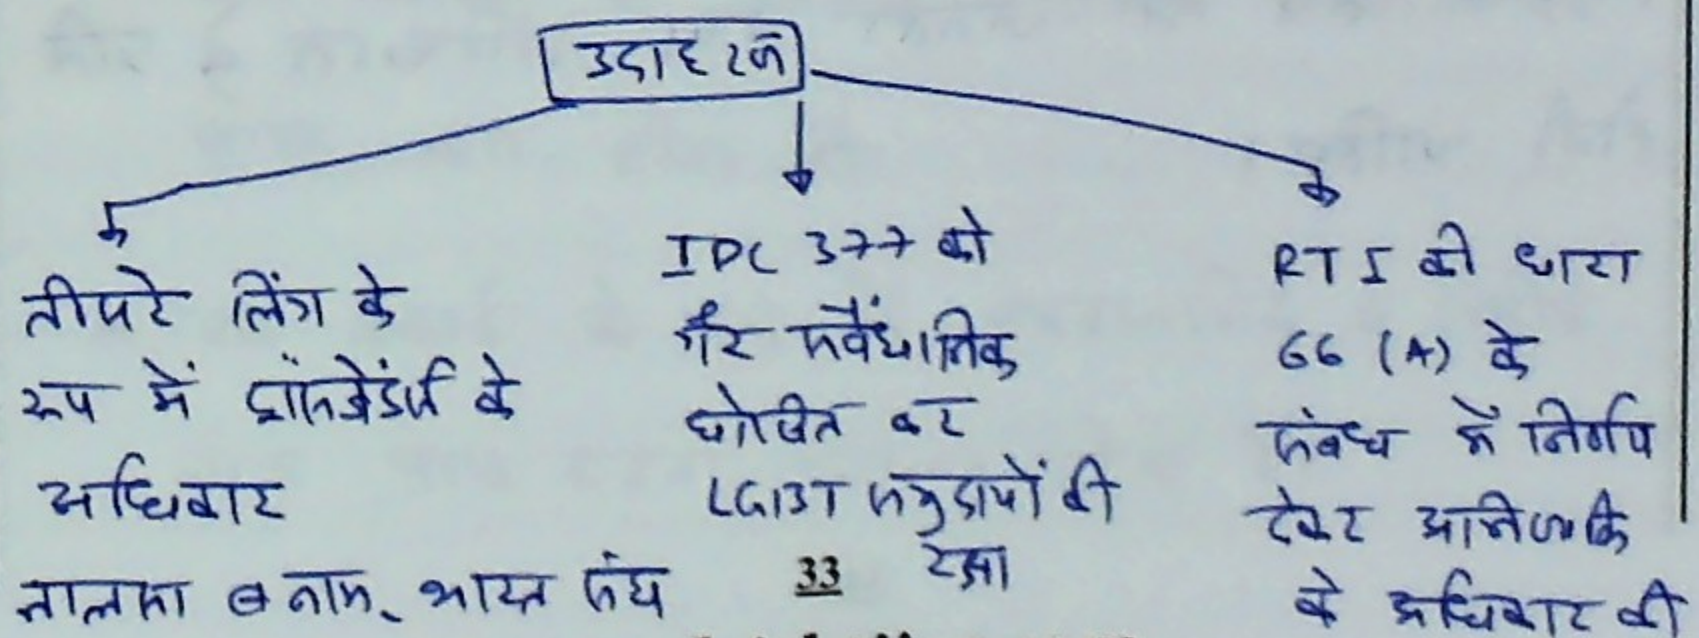 उदाहरण
तीसरे लिंग के
रूप में ट्रांसजेंडर्स के
अधिकार
नालसा बनाम भारत संघ
IPC 377 को
गैर सवैंधानिक
घोषित कर
LGBT समुदायों की
रक्षा
RTI की धारा
66 (A) के
संबंध में निर्णय
देकर अभिव्यक्ति
के अधिकार की
33